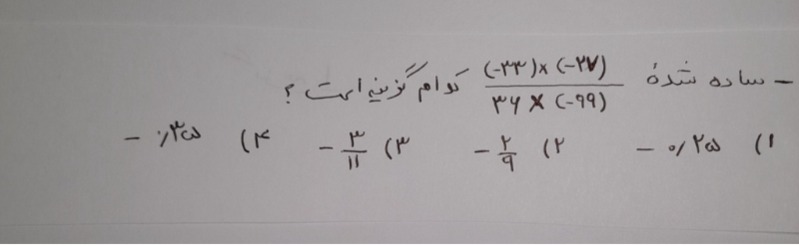 - ساده شدهٔ (-۳۳)×(-۲۷) / ۳۶×(-۹۹) کدام گزینه است ؟
۱) -۰/۲۵ ۲) -۲/۹ ۳) -۳/۱۱ ۴) -۰/۳۵